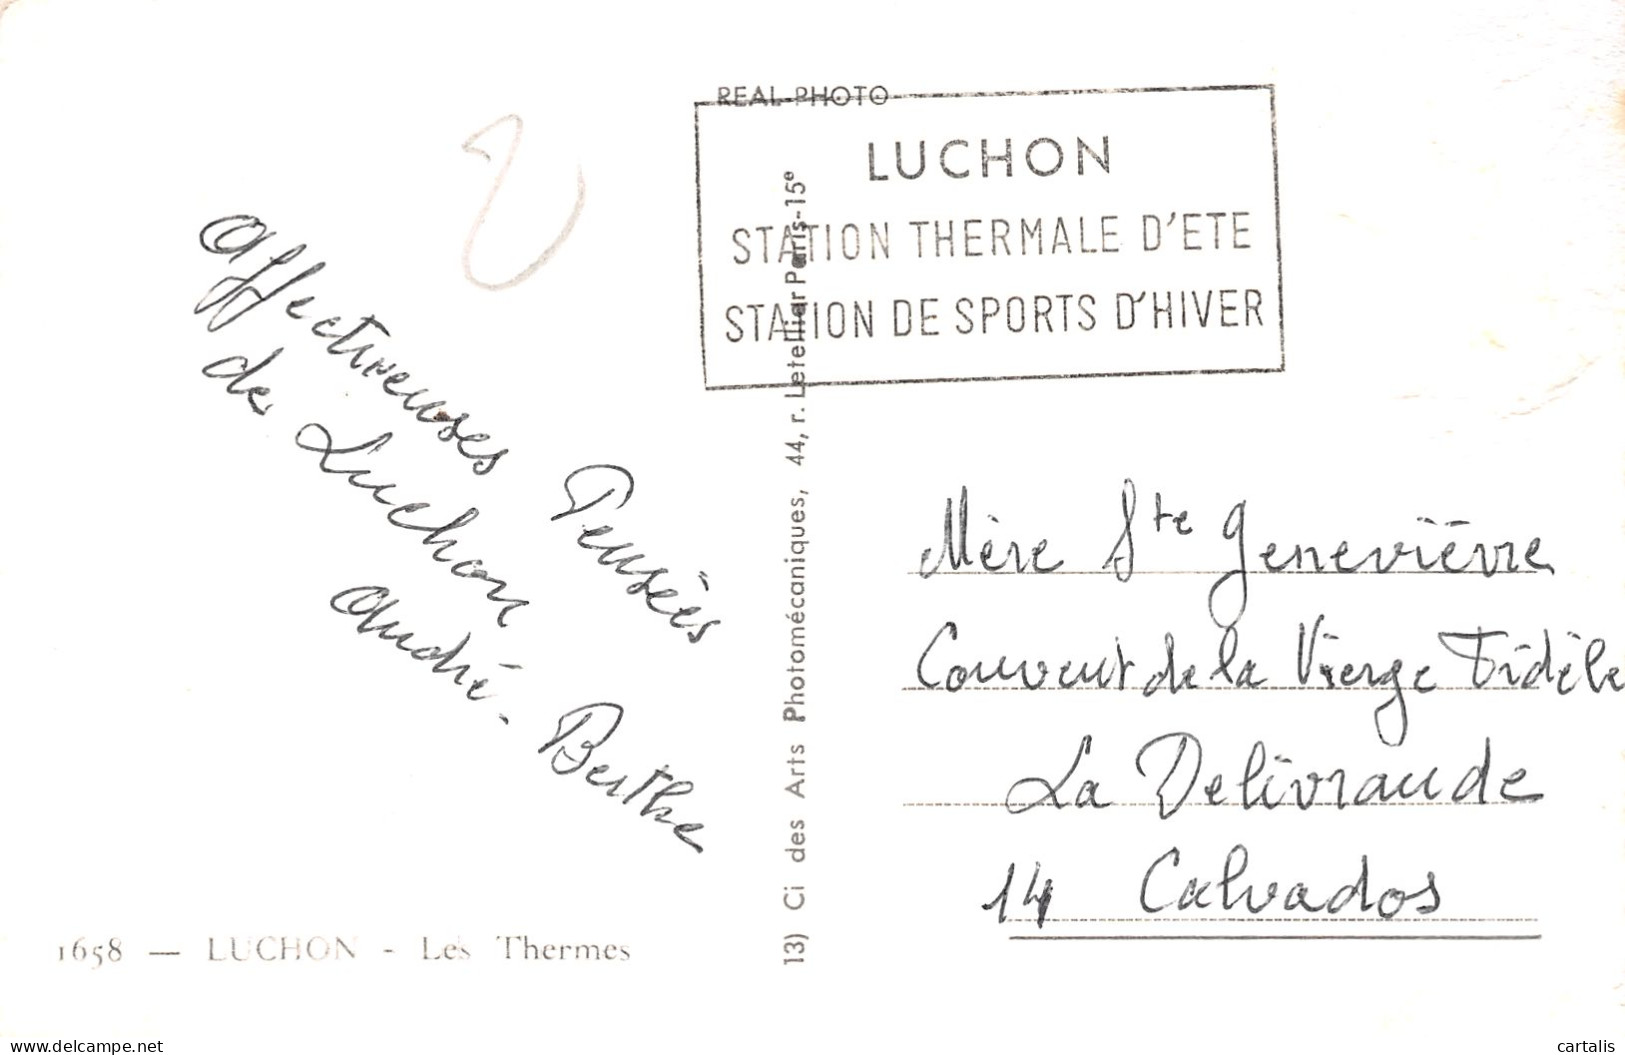 REAL-PHOTO
LUCHON
STATION THERMALE D'ETE
STATION DE SPORTS D'HIVER
Affectueuses Pensées
de Luchon
André - Berthe
13) Ci des Arts Photomécaniques, 44, r. Letellier Paris-15e
Mère Ste Geneviève
Couvent de la Vierge Fidèle
La Delivrande
14 Calvados
1658 — LUCHON - Les Thermes
delcampe.net
cartalis